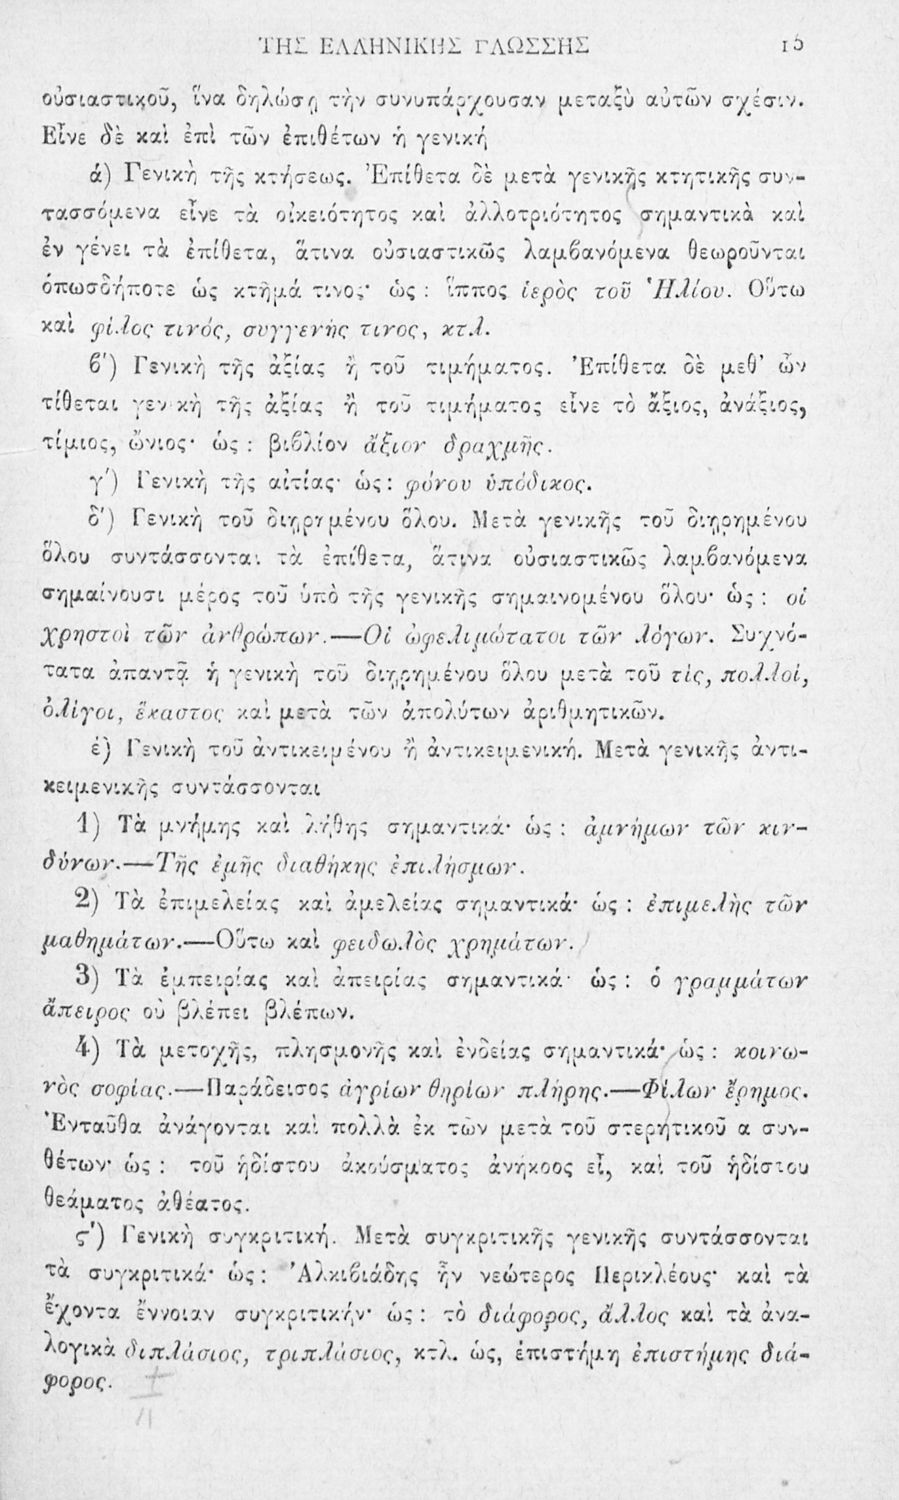 ΤΗΣ ΕΛΛΗΝΙΚΗΣ ΓΛΩΣΣΗΣ 15
οὐσιαστικοῦ, ἵνα δηλώσῃ τὴν συνυπάρχουσαν μεταξὺ αὐτῶν σχέσιν.
Εἶνε δὲ καὶ ἐπὶ τῶν ἐπιθέτων ἡ γενική
ά) Γενικὴ τῆς κτήσεως. Ἐπίθετα δὲ μετὰ γενικῆς κτητικῆς συν-
τασσόμενα εἶνε τὰ οἰκειότητος καὶ ἀλλοτριότητος σημαντικὰ καὶ
ἐν γένει τὰ ἐπίθετα, ἅτινα οὐσιαστικῶς λαμβανόμενα θεωροῦνται
ὁπωσδήποτε ὡς κτῆμά τινος· ὡς : ἵππος ἱερὸς τοῦ Ἡλίου. Οὕτω
καὶ φίλος τινός, συγγενής τινος, κτλ.
β') Γενικὴ τῆς ἀξίας ἢ τοῦ τιμήματος. Ἐπίθετα δὲ μεθ' ὧν
τίθεται γενικὴ τῆς ἀξίας ἢ τοῦ τιμήματος εἶνε τὸ ἄξιος, ἀνάξιος,
τίμιος, ὤνιος· ὡς : βιβλίον ἄξιον δραχμῆς.
γ') Γενικὴ τῆς αἰτίας· ὡς : φόνου ὑπόδικος.
δ') Γενικὴ τοῦ διῃρημένου ὅλου. Μετὰ γενικῆς τοῦ διῃρημένου
ὅλου συντάσσονται τὰ ἐπίθετα, ἅτινα οὐσιαστικῶς λαμβανόμενα
σημαίνουσι μέρος τοῦ ὑπὸ τῆς γενικῆς σημαινομένου ὅλου· ὡς : οἱ
χρηστοὶ τῶν ἀνθρώπων.—Οἱ ὠφελιμώτατοι τῶν λόγων. Συχνό-
τατα ἀπαντᾷ ἡ γενικὴ τοῦ διῃρημένου ὅλου μετὰ τοῦ τίς, πολλοί,
ὀλίγοι, ἕκαστος καὶ μετὰ τῶν ἀπολύτων ἀριθμητικῶν.
έ) Γενικὴ τοῦ ἀντικειμένου ἢ ἀντικειμενική. Μετὰ γενικῆς ἀντι-
κειμενικῆς συντάσσονται
1) Τὰ μνήμης καὶ λήθης σημαντικά· ὡς : ἀμνήμων τῶν κιν-
δύνων.—Τῆς ἐμῆς διαθήκης ἐπιλήσμων.
2) Τὰ ἐπιμελείας καὶ ἀμελείας σημαντικά· ὡς : ἐπιμελὴς τῶν
μαθημάτων.—Οὕτω καὶ φειδωλὸς χρημάτων.
3) Τὰ ἐμπειρίας καὶ ἀπειρίας σημαντικά· ὡς : ὁ γραμμάτων
ἄπειρος οὐ βλέπει βλέπων.
4) Τὰ μετοχῆς, πλησμονῆς καὶ ἐνδείας σημαντικά· ὡς : κοινω-
νὸς σοφίας.—Παράδεισος ἀγρίων θηρίων πλήρης.—Φίλων ἔρημος.
Ἐνταῦθα ἀνάγονται καὶ πολλὰ ἐκ τῶν μετὰ τοῦ στερητικοῦ α συν-
θέτων· ὡς : τοῦ ἡδίστου ἀκούσματος ἀνήκοος εἶ, καὶ τοῦ ἡδίστου
θεάματος ἀθέατος.
ϛ') Γενικὴ συγκριτική. Μετὰ συγκριτικῆς γενικῆς συντάσσονται
τὰ συγκριτικά· ὡς : Ἀλκιβιάδης ἦν νεώτερος Περικλέους· καὶ τὰ
ἔχοντα ἔννοιαν συγκριτικήν· ὡς : τὸ διάφορος, ἄλλος καὶ τὰ ἀνα-
λογικὰ διπλάσιος, τριπλάσιος, κτλ. ὡς, ἐπιστήμη ἐπιστήμης διά-
φορος.